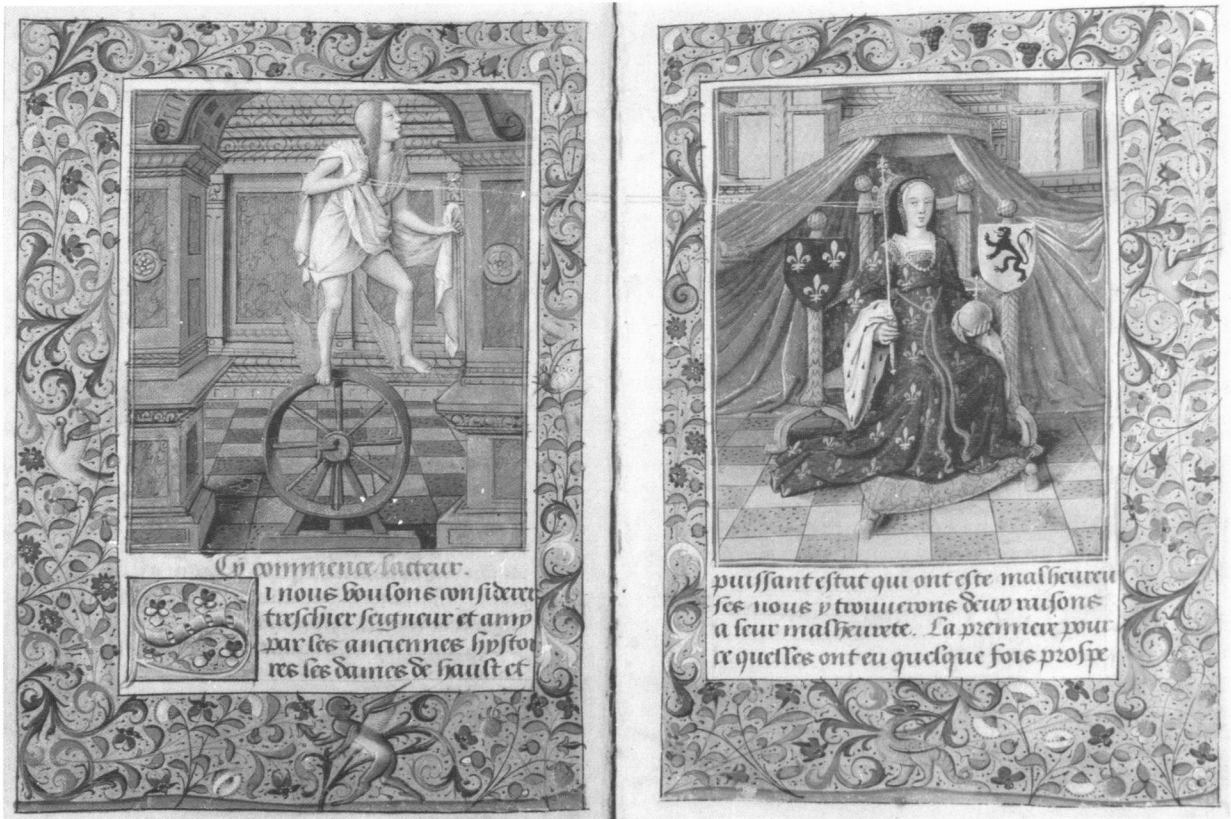 Cy commence lacteur.
Si nous voulons considerer
treschier seigneur et amy
par les anciennes hystoi
res les dames de hault et
puissant estat qui ont este malheureu
ses nous y trouuerons deux raisons
a leur malheurete. La premiere pour
ce quelles ont eu quelque fois prospe